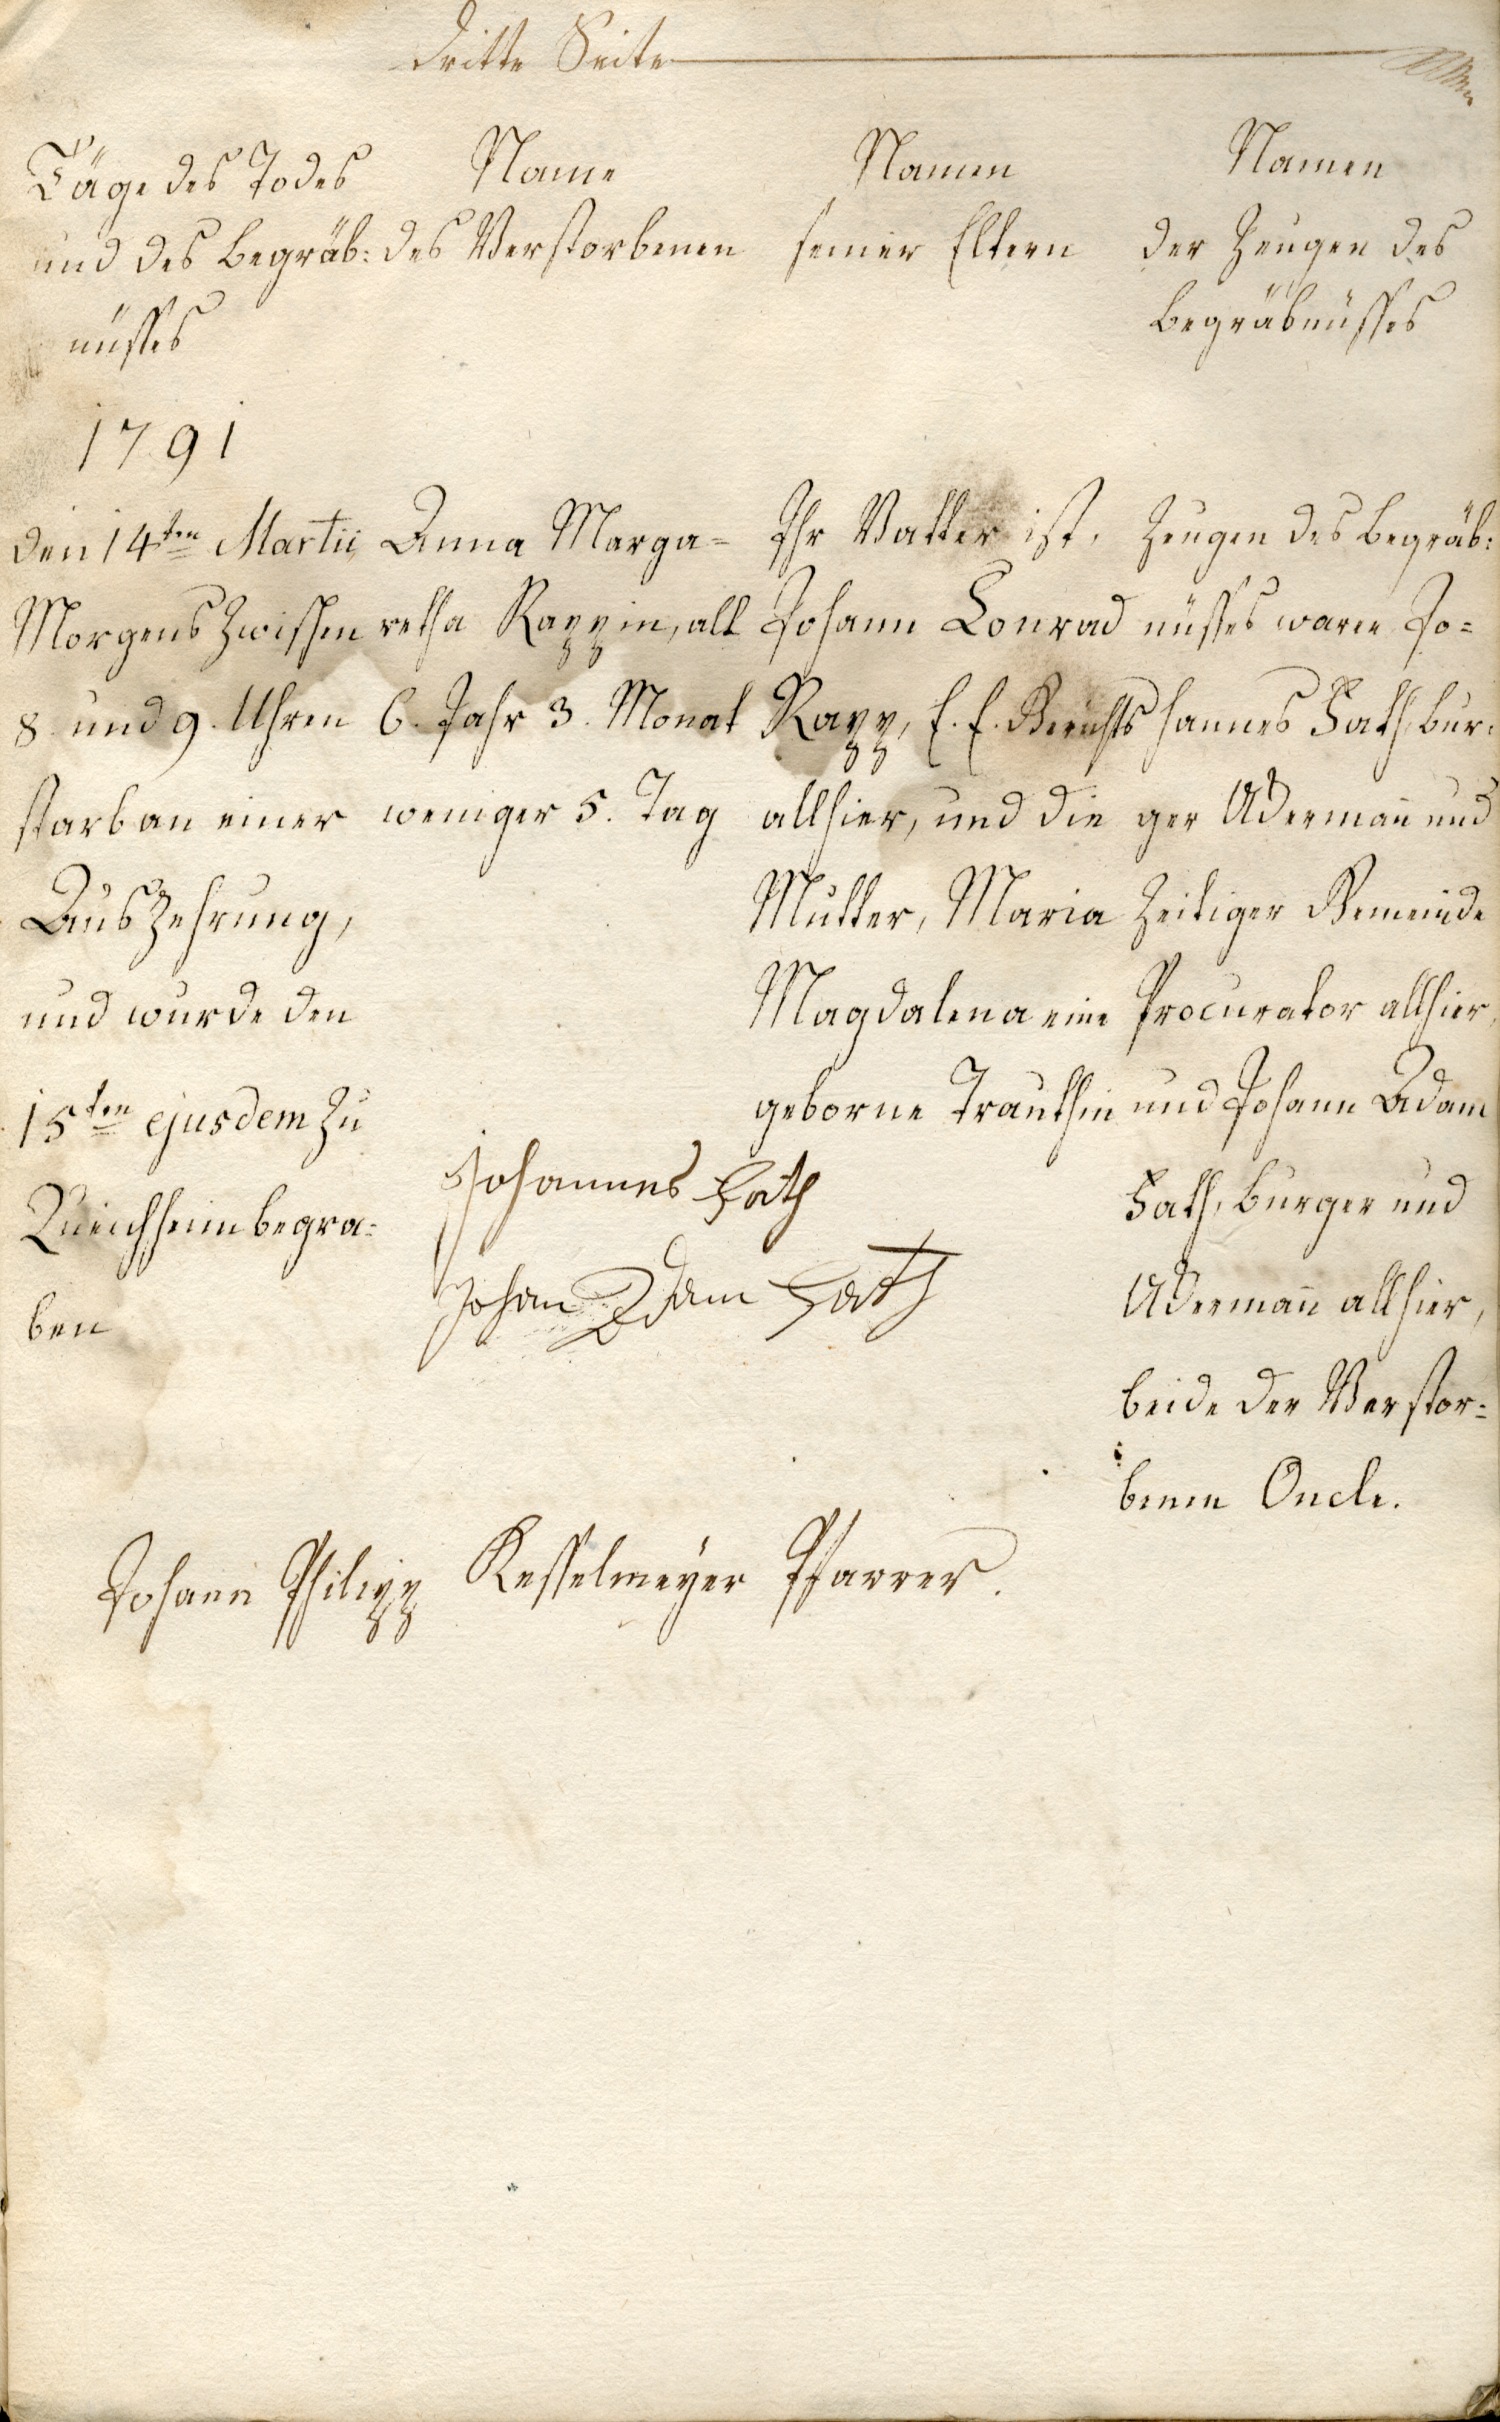 Dritte Seite
Täge des Todes
und des Begräb:
nüsses
Name
des Verstorbenen
Namen
seiner Eltern
Namen
der Zeugen des
Begräbnüsses
1791
den 14ten Martii
Morgens zwischen
8. und 9. Uhren
starb an einer
Auszehrung,
und wurde den
15ten ejusdem zu
Queichheim begra=
ben
Anna Marga=
retha Rappin, alt
6. Jahr 3. Monat
weniger 5. Tag
Ihr Vatter ist,
Johann Conrad
Rapp, E. E. Gerichts
allhier, und die
Mutter, Maria
Magdalena eine
geborne Trauthin
Zeugen des Begräb:
nüsses waren Jo=
hannes Fath, Bur:
ger Ackermann und
zeitiger Gemeinde
Procurator allhier,
und Johann Adam
Fath, Burger und
Ackermann allhier,
beide der Verstor=
benen Oncle.
Johannes Fath
Johan Adam Fath
Johann Philipp Kesselmeyer Pfarrer.